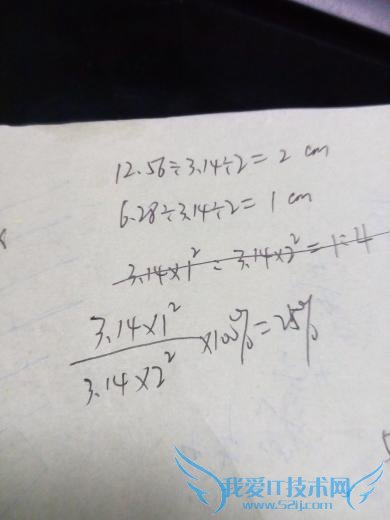 12.56÷3.14÷2=2 cm
6.28÷3.14÷2=1 cm
3.14×1²:3.14×2²=1:4
3.14×1²
3.14×2²
×100%=25%
我爱IT技术网
www.52ij.com